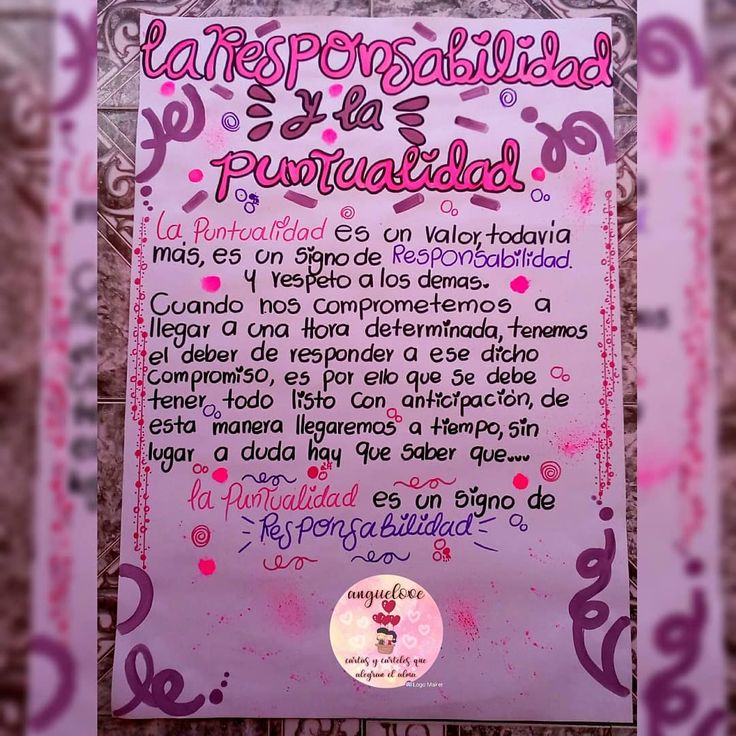 La Responsabilidad
y la
Puntualidad
La Puntualidad es un valor, todavia
más, es un signo de Responsabilidad.
y respeto a los demas.
Cuando nos comprometemos a
llegar a una Hora determinada, tenemos
el deber de responder a ese dicho
compromiso, es por ello que se debe
tener todo listo con anticipación, de
esta manera llegaremos a tiempo, sin
lugar a duda hay que saber que...
la Puntualidad es un signo de
Responsabilidad
anguelove
cartas y carteles que
alegran el alma
Logo Maker